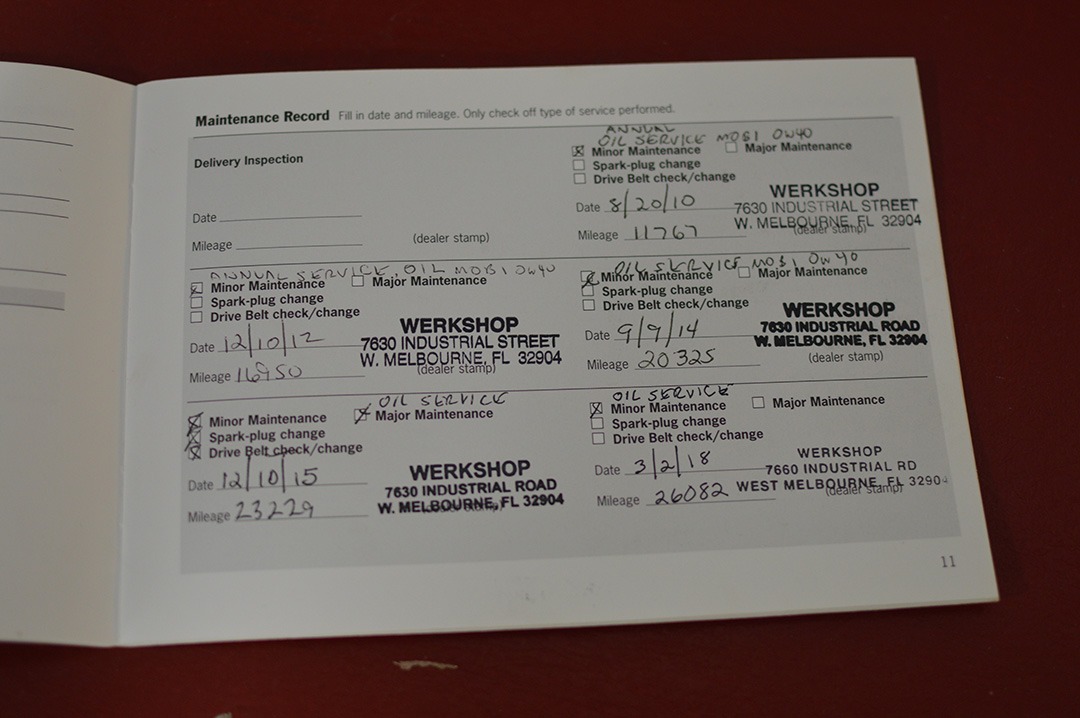 Maintenance Record Fill in date and mileage. Only check off type of service performed.
Delivery Inspection
Date
Mileage
(dealer stamp)
ANNUAL
OIL SERVICE MOB1 0W40
Minor Maintenance Major Maintenance
Spark-plug change
Drive Belt check/change
Date 8/20/10
Mileage 11767
WERKSHOP
7630 INDUSTRIAL STREET
W. MELBOURNE, FL 32904
(dealer stamp)
ANNUAL SERVICE, OIL MOB1 0W40
Minor Maintenance Major Maintenance
Spark-plug change
Drive Belt check/change
Date 12/10/12
Mileage 16950
WERKSHOP
7630 INDUSTRIAL STREET
W. MELBOURNE, FL 32904
(dealer stamp)
OIL SERVICE MOB1 0W40
Minor Maintenance Major Maintenance
Spark-plug change
Drive Belt check/change
Date 9/9/14
Mileage 20325
WERKSHOP
7630 INDUSTRIAL ROAD
W. MELBOURNE, FL 32904
(dealer stamp)
OIL SERVICE
Minor Maintenance Major Maintenance
Spark-plug change
Drive Belt check/change
Date 12/10/15
Mileage 23229
WERKSHOP
7630 INDUSTRIAL ROAD
W. MELBOURNE, FL 32904
(dealer stamp)
OIL SERVICE
Minor Maintenance Major Maintenance
Spark-plug change
Drive Belt check/change
Date 3/2/18
Mileage 26082
WERKSHOP
7660 INDUSTRIAL RD
WEST MELBOURNE, FL 32904
(dealer stamp)
11